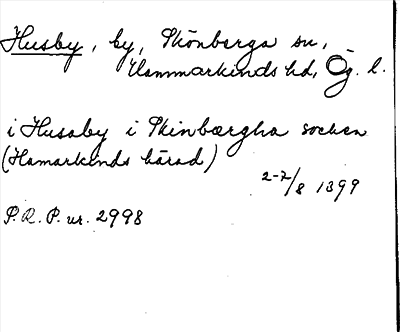 Husby, by, Skönberga sn,
Hammarkinds hd, Ög. l.
i Husaby i Skinbærgha socken
(Hamarkinds härad)
2-7/8 1399
P.R.P. nr. 2998